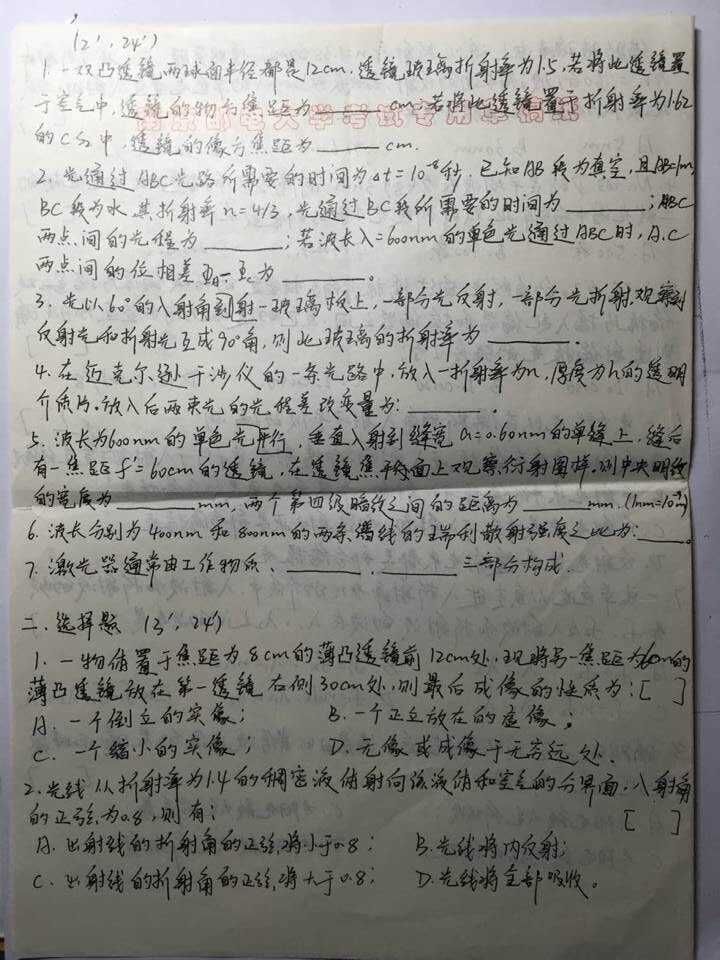 (2', 24')
1. 一双凸透镜两球面半径都是12cm, 透镜玻璃折射率为1.5, 若将此透镜置
于空气中, 透镜的物方焦距为______cm; 若将此透镜置于折射率为1.62
的CS₂中, 透镜的像方焦距为______cm.
2. 光通过ABC光路所需要的时间为Δt=10⁻⁸秒. 已知AB段为真空, 且AB=1m,
BC段为水, 其折射率n=4/3, 光通过BC段所需要的时间为________; ABC
两点间的光程为________; 若波长λ=600nm的单色光通过ABC时, A.C
两点间的位相差为________。
3. 光以60°的入射角到射一玻璃板上, 一部分光反射, 一部分光折射, 观察到
反射光和折射光互成90°角, 则此玻璃的折射率为________.
4. 在迈克尔逊干涉仪的一条光路中, 放入一折射率为n, 厚度为h的透明
介质片. 放入后两束光的光程差改变量为: ________.
5. 波长为600nm的单色光平行, 垂直入射到缝宽a=0.60mm的单缝上, 缝后
有一焦距f'=60cm的透镜, 在透镜焦平面上观察衍射图样, 则中央明纹
的宽度为________mm, 两个第四级暗纹之间的距离为________mm. (1nm=10⁻⁹m)
6. 波长分别为400nm和800nm的两条谱线的瑞利散射强度之比为: ____。
7. 激光器通常由工作物质、________、________三部分构成.
二. 选择题 (3', 24')
1. 一物体置于焦距为8cm的薄凸透镜前12cm处, 现将另一焦距为6cm的
薄凸透镜放在第一透镜右侧30cm处, 则最后成像的性质为: [ ]
A. 一个倒立的实像; B. 一个正立放在的虚像;
C. 一个缩小的实像; D. 无像或成像于无穷远处.
2. 光线从折射率为1.4的稠密液体射向该液体和空气的分界面, 入射角
的正弦为0.8, 则有: [ ]
A. 出射线的折射角的正弦将小于0.8; B. 光线将内反射;
C. 出射线的折射角的正弦将大于0.8; D. 光线将全部吸收。